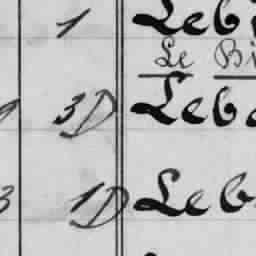 1 Leb
Le Bi
3D Leb
3 1D Leb